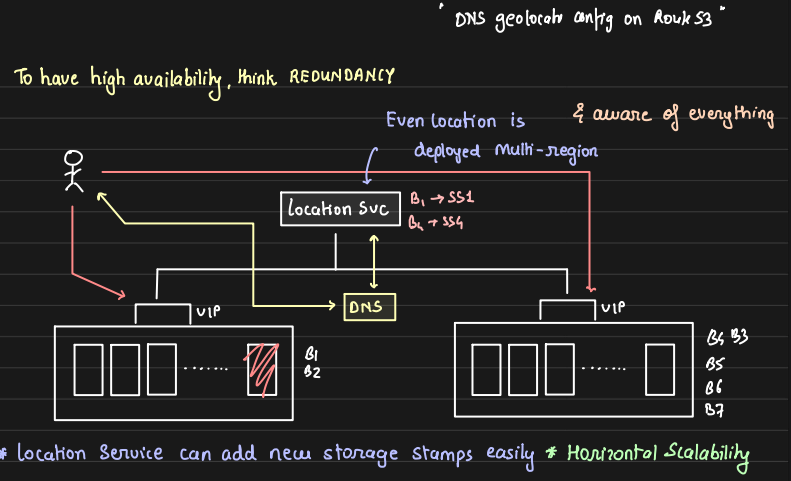 " DNS geolocatn config on Route 53 "
To have high availability, think REDUNDANCY
Even location is
deployed Multi-region
& aware of everything
Location Svc
B1 → SS1
B4 → SS4
DNS
VIP
VIP
.......
B1
B2
.......
B4 B3
B5
B6
B7
* Location Service can add new storage stamps easily * Horizontal Scalability